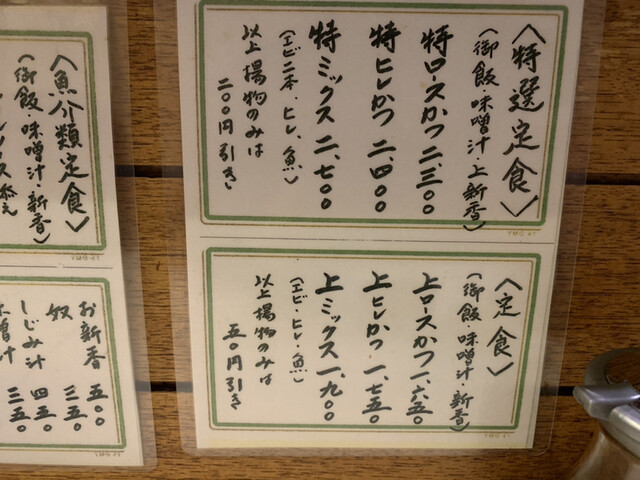 〈特選定食〉
(御飯・味噌汁・上新香)
特ロースかつ 二、三〇〇
特ヒレかつ 二、四〇〇
特ミックス 二、七〇〇
(エビ二本、ヒレ、魚)
以上揚物のみは
二〇〇円引き
〈定食〉
(御飯・味噌汁・新香)
上ロースかつ 一、六五〇
上ヒレかつ 一、七五〇
上ミックス 一、九〇〇
(エビ・ヒレ・魚)
以上揚物のみは
五〇円引き
〈魚介類定食〉
(御飯・味噌汁・新香)
添え
お新香 五〇〇
奴 三五〇
しじみ汁 四五〇
味噌汁 三五〇